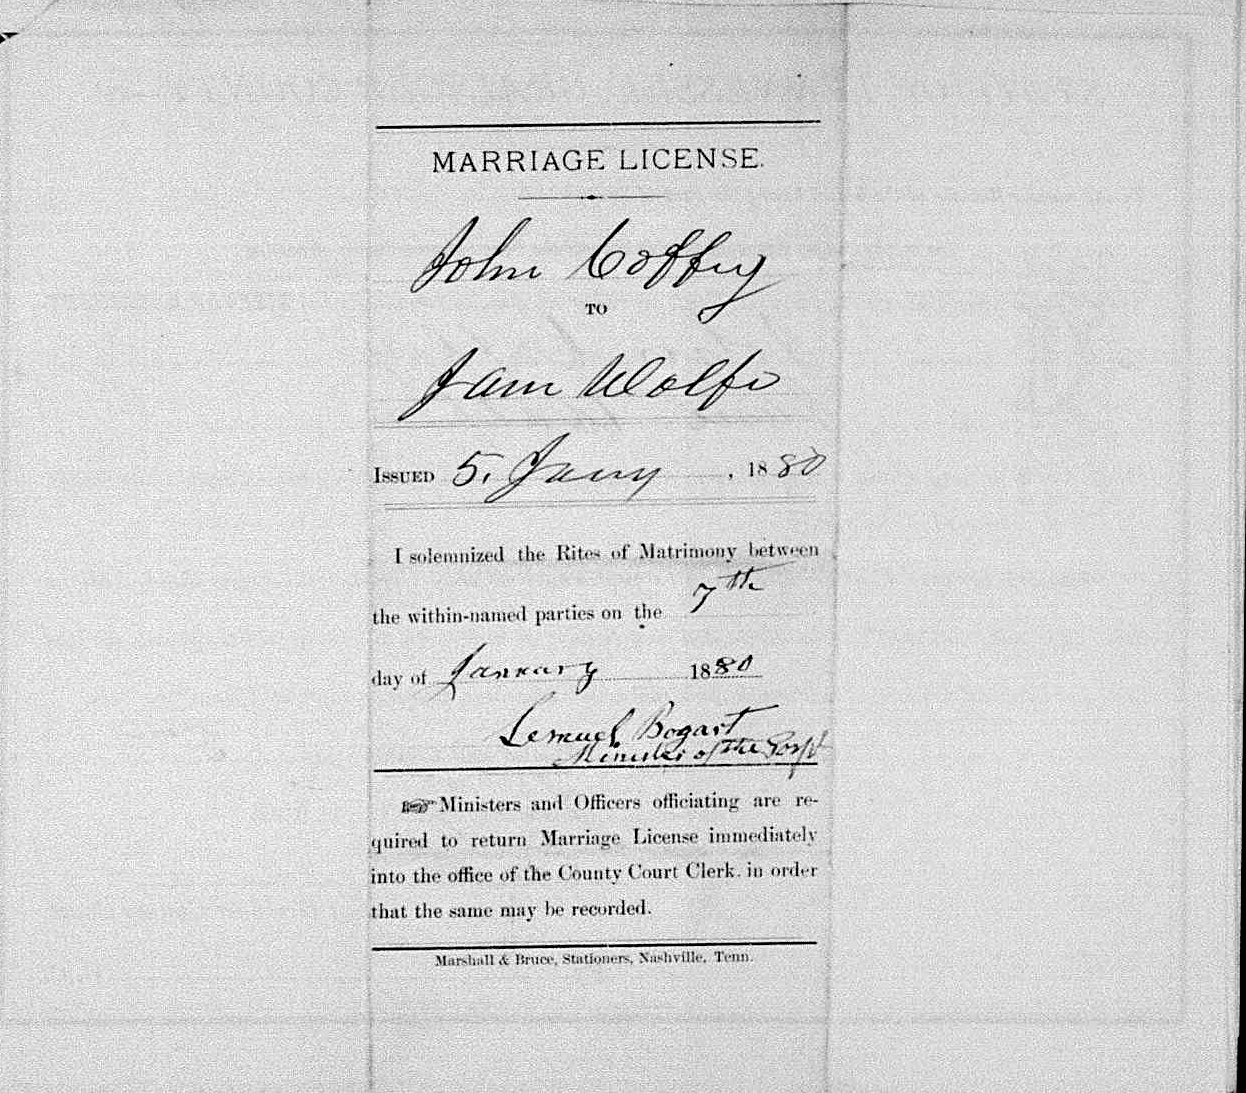 MARRIAGE LICENSE.
John Coffey
TO
Jam Wolfe
ISSUED 5. Jany, 1880
I solemnized the Rites of Matrimony between
the within-named parties on the 7th
day of January 1880
Lemuel Bogart
Minister of the Gosple
Ministers and Officers officiating are re-
quired to return Marriage License immediately
into the office of the County Court Clerk. in order
that the same may be recorded.
Marshall & Bruce, Stationers, Nashville, Tenn.